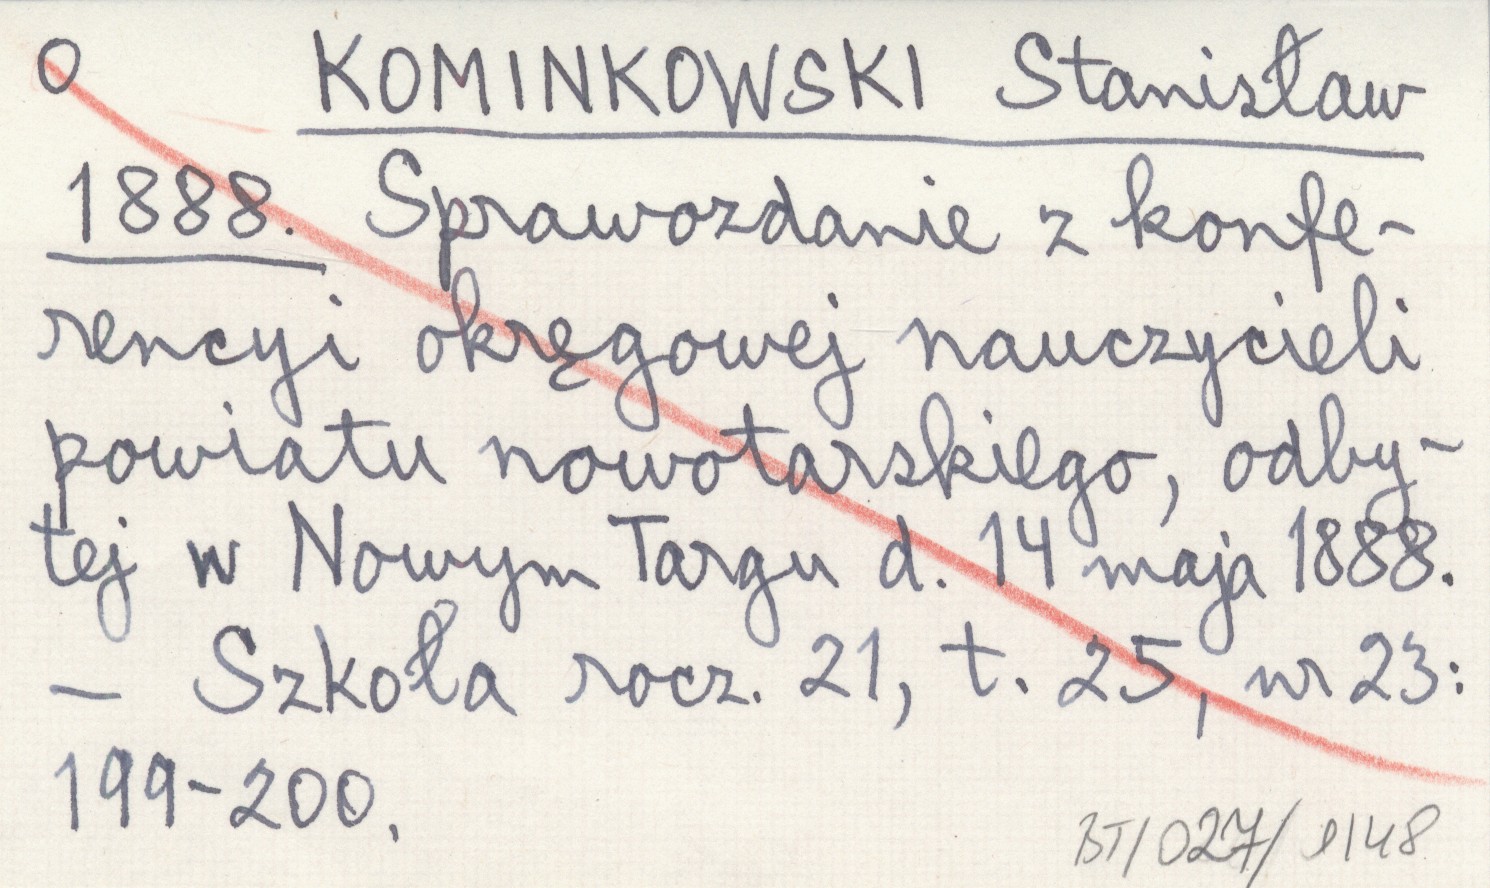 O KOMINKOWSKI Stanisław
1888. Sprawozdanie z konfe-
rencyi okręgowej nauczycieli
powiatu nowotarskiego, odby-
tej w Nowym Targu d. 14 maja 1888.
— Szkoła rocz. 21, t. 25, nr 23:
199-200.
BT/027/